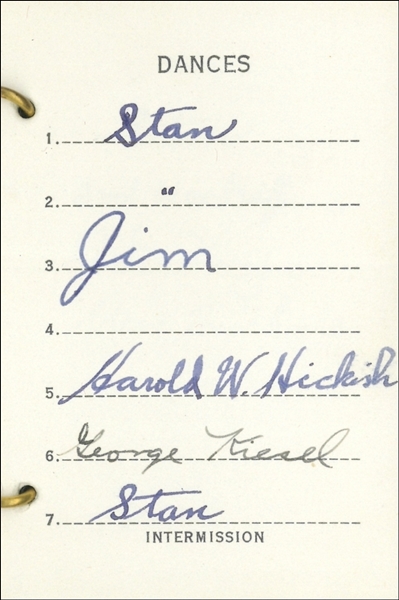 DANCES
1. Stan
2. "
3. Jim
4.
5. Harold W. Hickish
6. George Kiesel
7. Stan
INTERMISSION